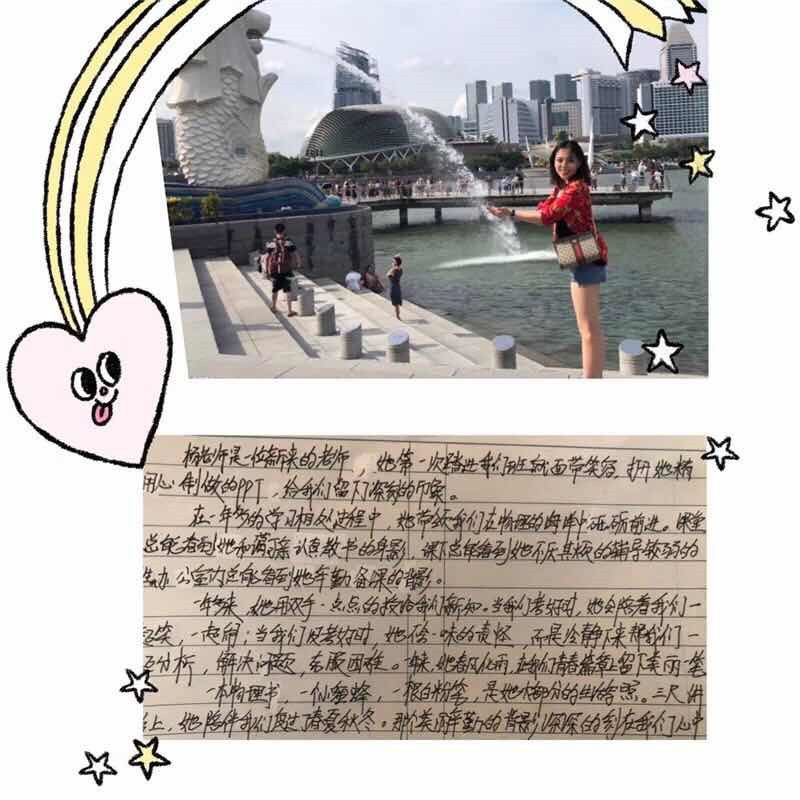 杨老师是一位新来的老师,她第一次踏进我们班就面带笑容,打开她精
用心制做的PPT,给我们留下深刻的印象。
在一年多的学习相处过程中,她带领我们在物理的海洋中砥砺前进。课堂
总能看到她和蔼可亲认真教书的身影,课下总能看到她不厌其烦的辅导较弱的
办公室内总能看到她辛勤备课的背影。
一年来,她用双手一点点的授给我们新知。当我们考好时,她会陪着我们一
起笑,一起闹;当我们没考好时,她不会一味的责怪,而是冷静下来帮我们一
分析,解决问题,克服困难。一年来,她春风化雨,在我们青春篇章上留下美丽一笔
一本物理书,一个小蜜蜂,一根白粉笔,是她大部分的生活写照。三尺讲
上,她陪伴我们度过了春夏秋冬。那个美丽辛勤的背影深深的刻在我们心中